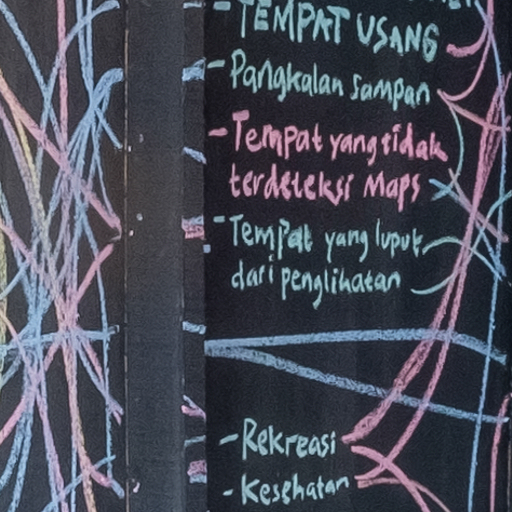 - TEMPAT USANG
- Pangkalan Sampan
- Tempat yang tidak
terdeteksi Maps
- Tempat yang luput
dari penglihatan
- Rekreasi
- Kesehatan